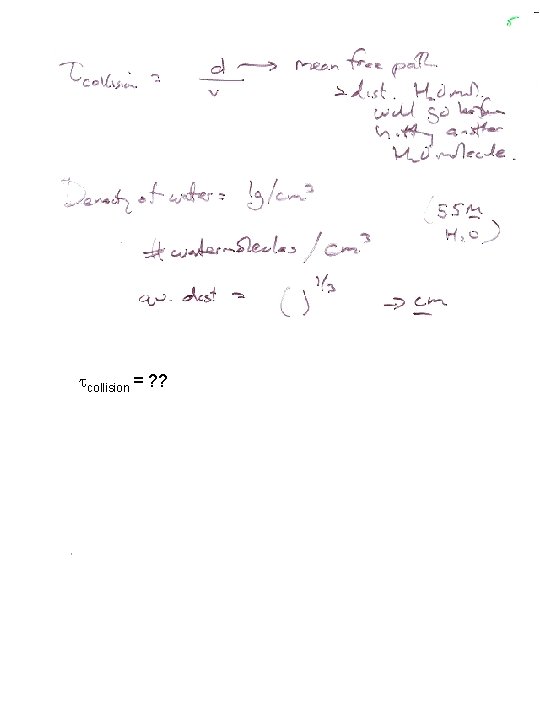 τcollision = d/v → mean free path
→ dist. H2O mol.
would go before
hitting another
H2O molecule.
Density of water = 1g/cm3
(55M
H2O)
# water molecules / cm3
av. dist = ( )1/3 → cm
τcollision = ??